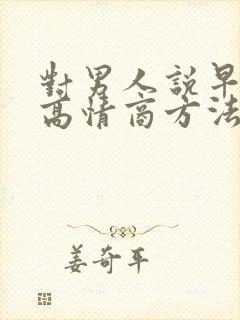 對男人說早
高情商方法
姜奇平